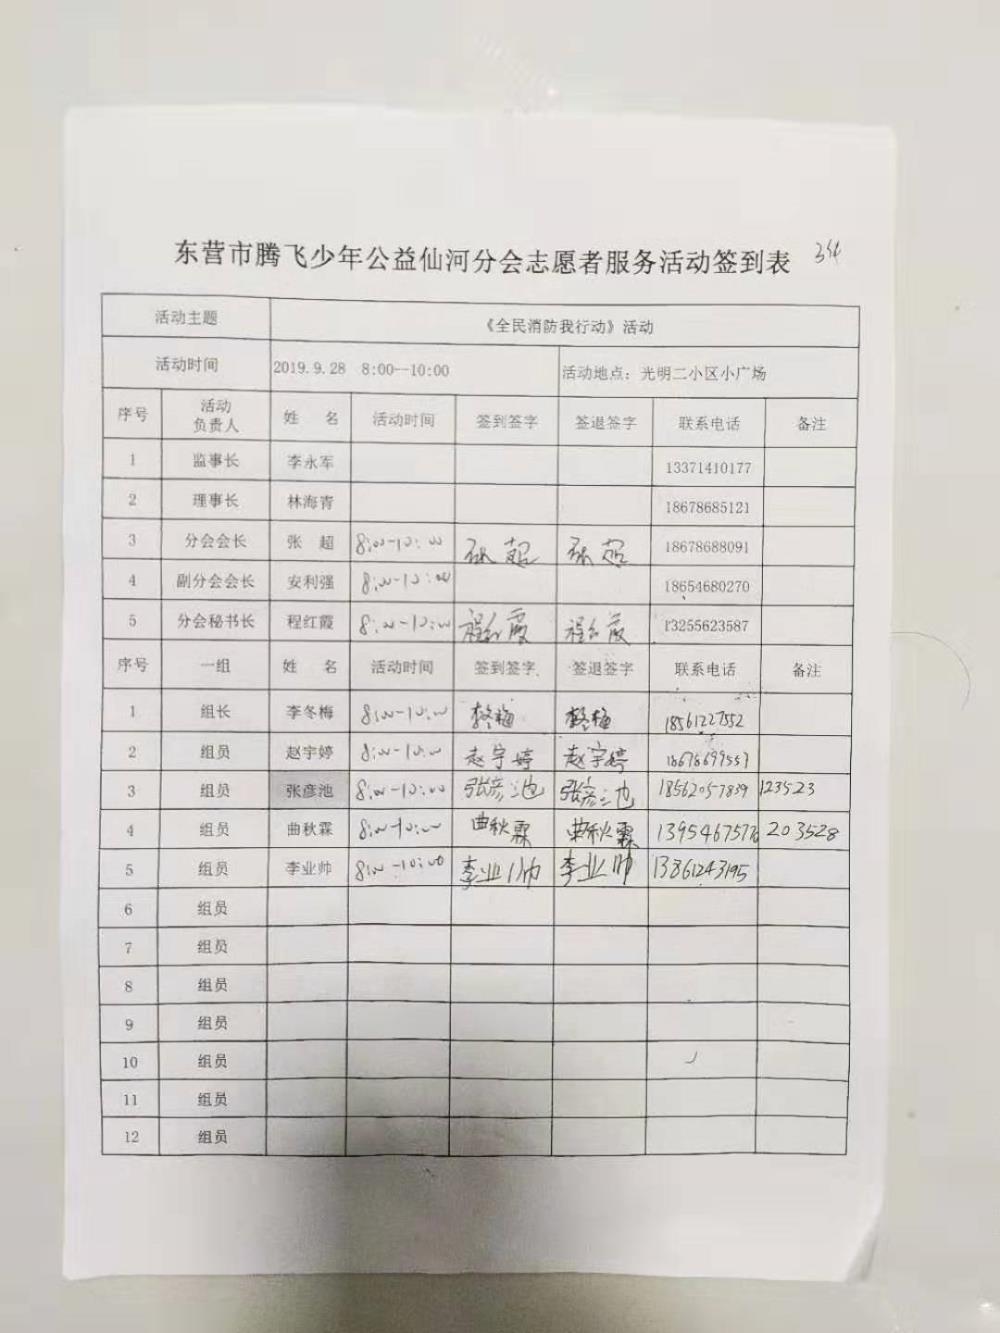 东营市腾飞少年公益仙河分会志愿者服务活动签到表
活动主题 《全民消防我行动》活动
活动时间 2019.9.28 8:00--10:00 活动地点：光明二小区小广场
序号 活动负责人 姓 名 活动时间 签到签字 签退签字 联系电话 备注
1 监事长 李永军 13371410177
2 理事长 林海青 18678685121
3 分会会长 张 超 8:00-10:00 张超 张超 18678688091
4 副分会会长 安利强 8:00-10:00 18654680270
5 分会秘书长 程红霞 8:00-10:00 程红霞 程红霞 13255623587
序号 一组 姓 名 活动时间 签到签字 签退签字 联系电话 备注
1 组长 李冬梅 8:00-10:00 18561227552
2 组员 赵宇婷 8:00-10:00 赵宇婷 赵宇婷
3 组员 张彦池 8:00-10:00 张彦池 张彦池 18562057839 123523
4 组员 曲秋霖 8:00-10:00 曲秋霖 曲秋霖 13954675776 203528
5 组员 李业帅 8:00-10:00 李业帅 李业帅 13861243195
6 组员
7 组员
8 组员
9 组员
10 组员
11 组员
12 组员